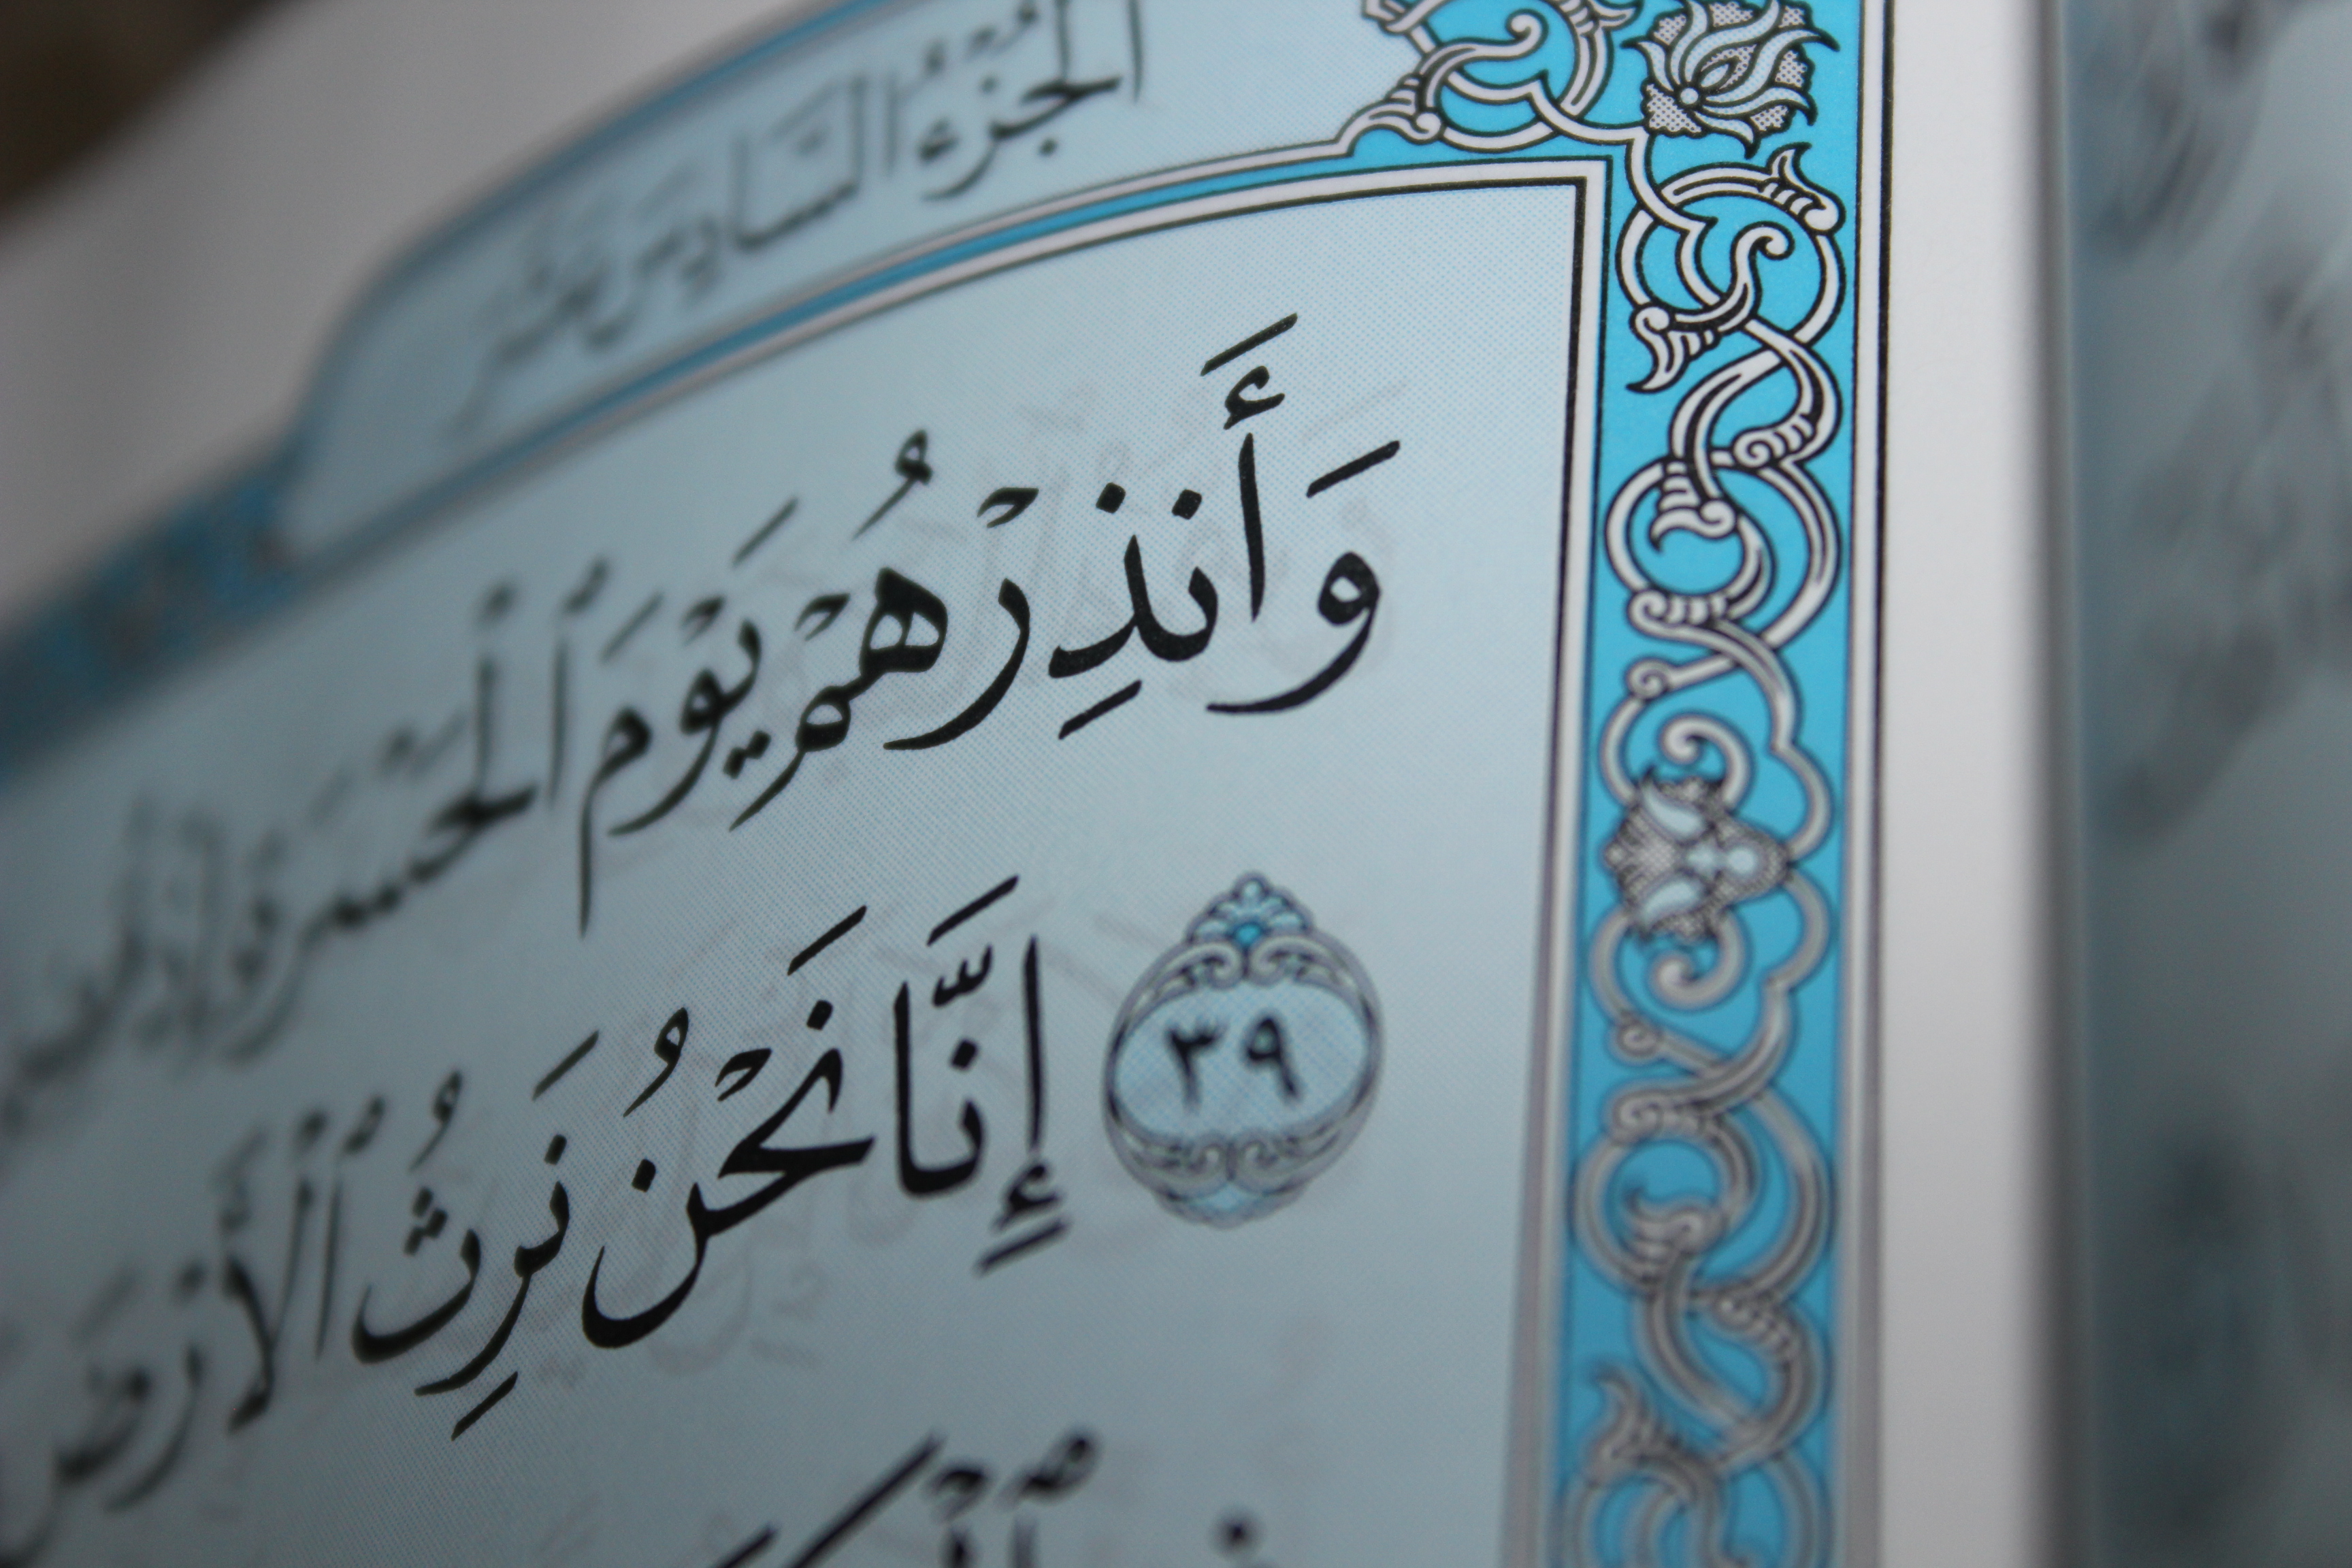 الجزء السادس عشر
وَأَنذِرْهُمْ يَوْمَ ٱلْحَسْرَةِ إِذْ قُضِىَ
٣٩ إِنَّا نَحْنُ نَرِثُ ٱلْأَرْضَ